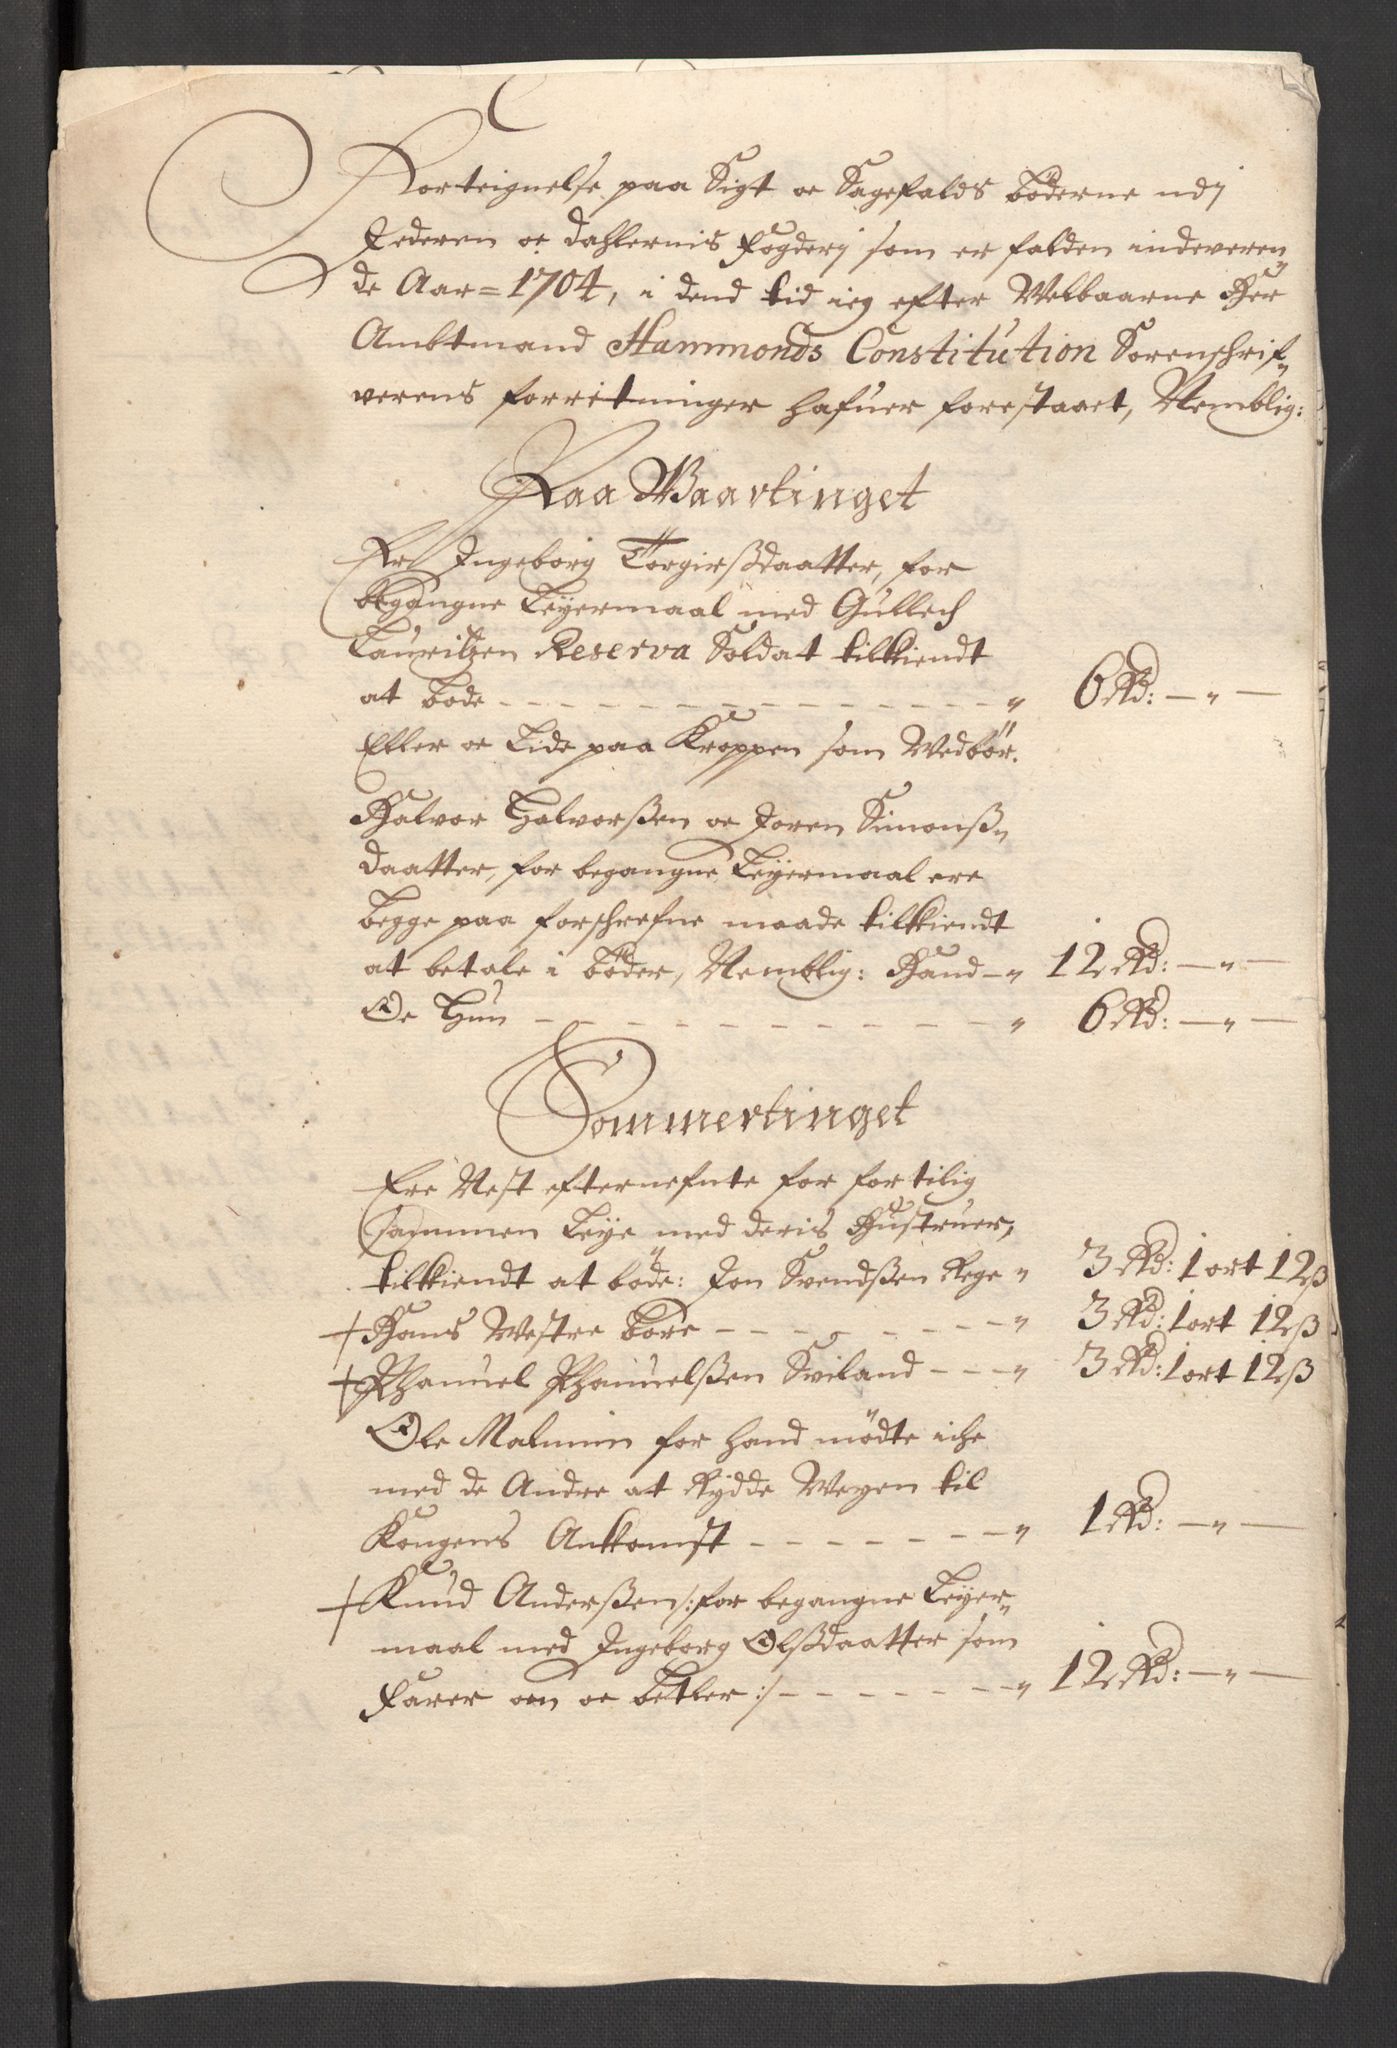 Forteignelse paa Sigt oc Sagefalds böderne udj
Jederen oc Dahlernis fogderj som er falden indeveren
de Aar = 1704, i dend tid ieg efter Welbaarne Her
Ambtmand Hammonds Constitution Sorenschrif„
verens forretninger hafuer forestaaet, Nemblig:
Paa Waartinget
Er Ingeborig Torgirßdaatter, for
begangne Leyermaal med Gullech
Lauritzen Reserva Soldat tilkiendt
at bøde - - - „ 6 Rd: — „ —
Eller oc Lide paa Kroppen som Wedbör.
Halvor Halvorßen oc Joren Simonß„
daatter, for begangne Leyermaal ere
begge paa forschrefne maade tilkiendt
at betale i böder, Nemblig: Hand - „ 12 Rd: — „ —
Oc Hun - - - „ 6 Rd: — „ —
Sommertinget
Ere Nest efternefnte for for tilig
sammen Leye med deris Hustruer,
tilkiendt at böde: Jon Svendßen Rege „ 3 Rd: 1 ort 12 ß
+ Hans Westre Bore - - - „ 3 Rd: 1 ort 12 ß
+ Phanuel Phanuelßen Sviland - - - „ 3 Rd: 1 ort 12 ß
Ole Malmin for hand mödte iche
med de Andre at Rydde Weyen til
Kongens Ankomst - - - „ 1 Rd: — „ —
+ Knud Anderßen /: for begangne Leyer„
maal med Ingeborg Olßdaatter som
farer om oc betler :/ - - - „ 12 Rd: — „ —